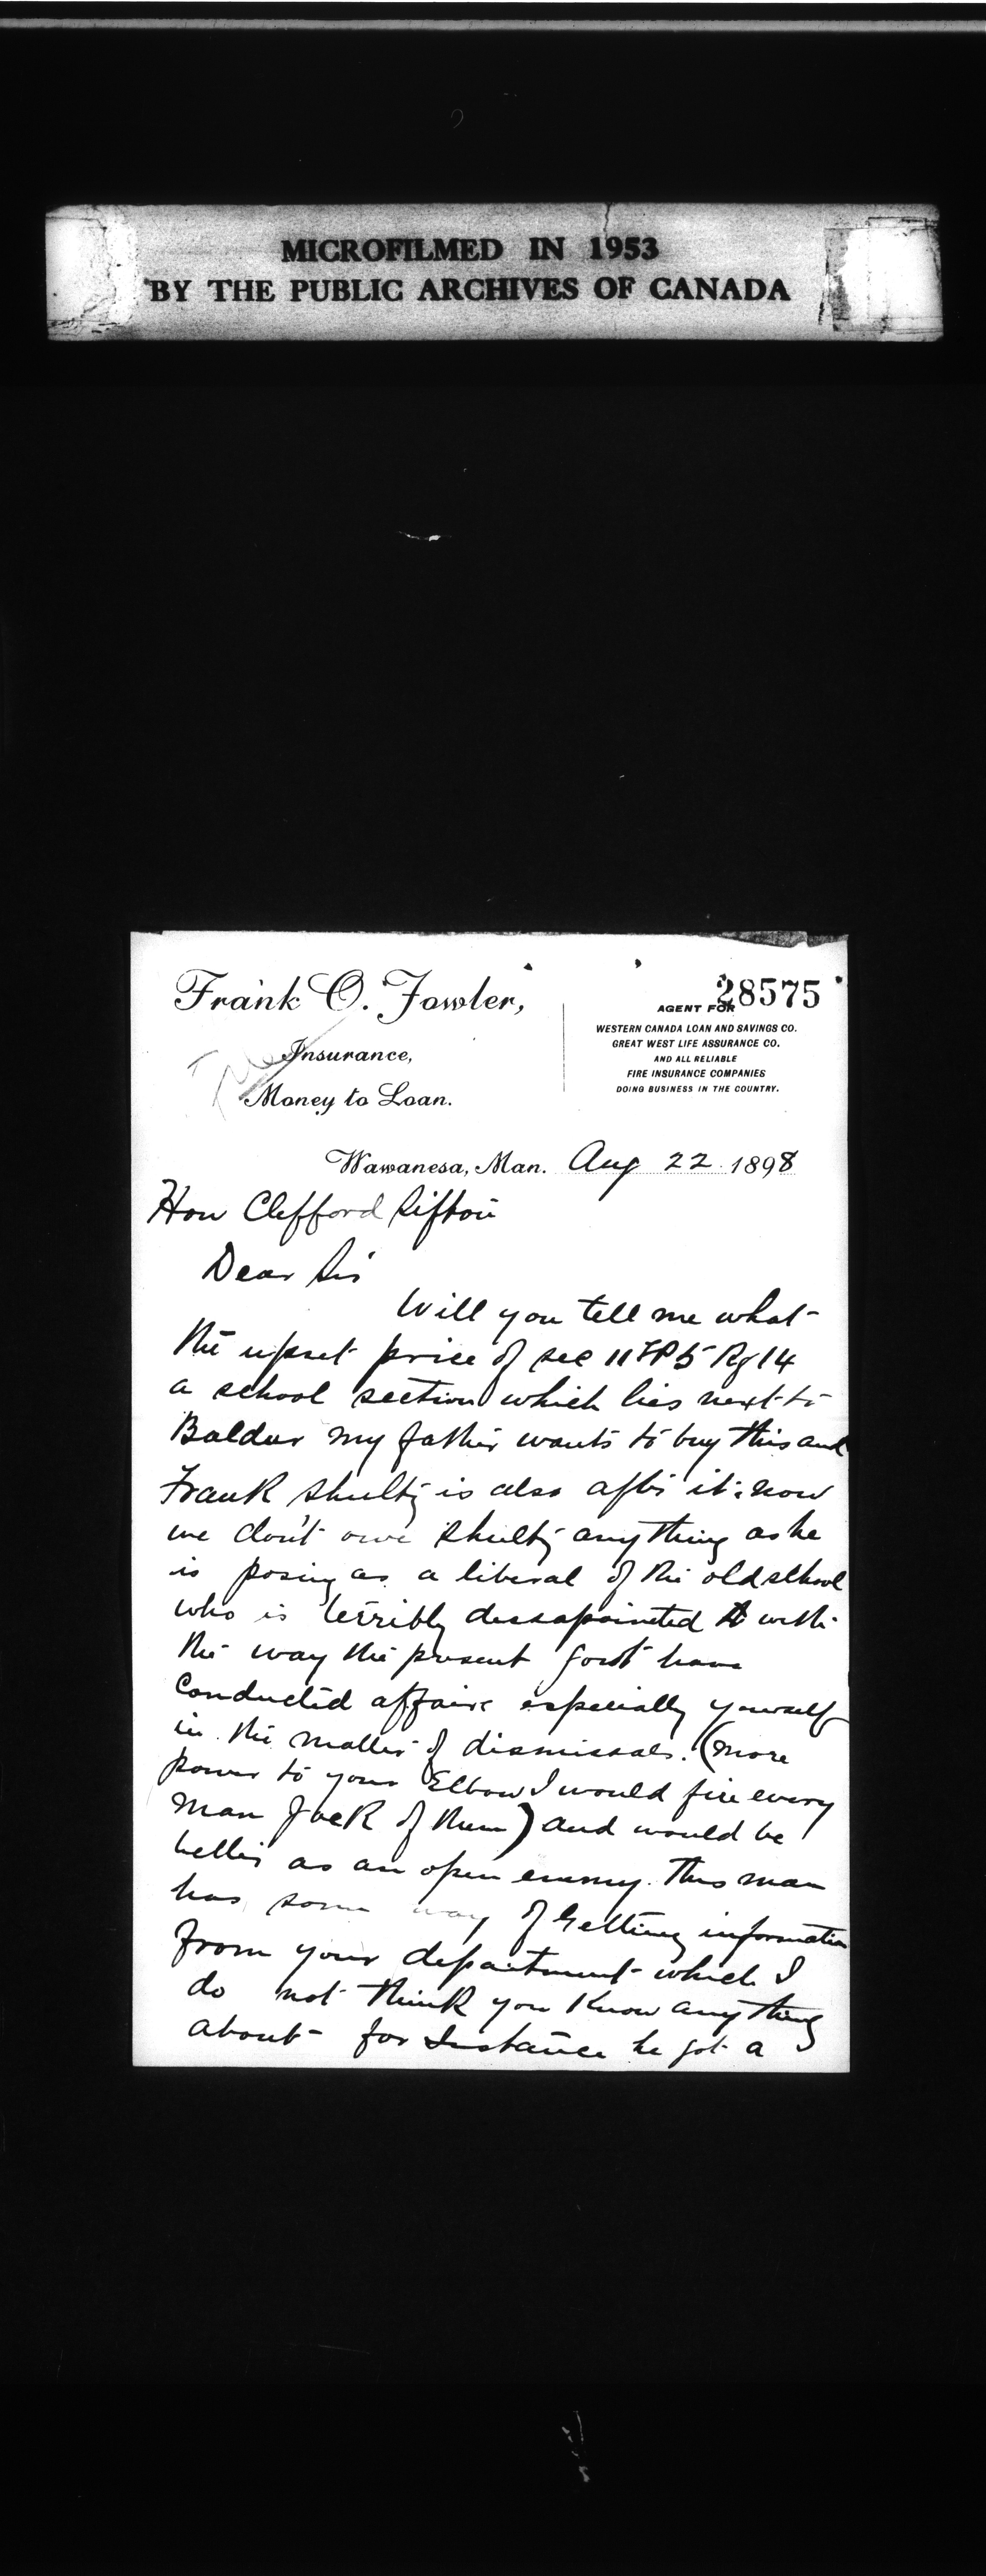 MICROFILMED IN 1953
BY THE PUBLIC ARCHIVES OF CANADA
Frank O. Fowler,
Insurance,
Money to Loan.
28575
AGENT FOR
WESTERN CANADA LOAN AND SAVINGS CO.
GREAT WEST LIFE ASSURANCE CO.
AND ALL RELIABLE
FIRE INSURANCE COMPANIES
DOING BUSINESS IN THE COUNTRY.
Wawanesa, Man. Aug 22 1898
Hon Clifford Sifton
Dear Sir
Will you tell me what
the upset price of sec 11 TP 5 Rg 14
a school section which lies next to
Baldur my father wants to buy this and
Frank Shultz is also after it. now
we don't owe Shultz anything as he
is posing as a liberal of the old school
who is terribly dissapointed with
the way the present Govt have
Conducted affairs especially yourself
in the matter of dismissals. (more
power to your Elbow I would fire every
man Jack of them) and would be
better as an open enemy. This man
has some way of Getting information
from your department which I
do not think you know anything
about for Instance he got a